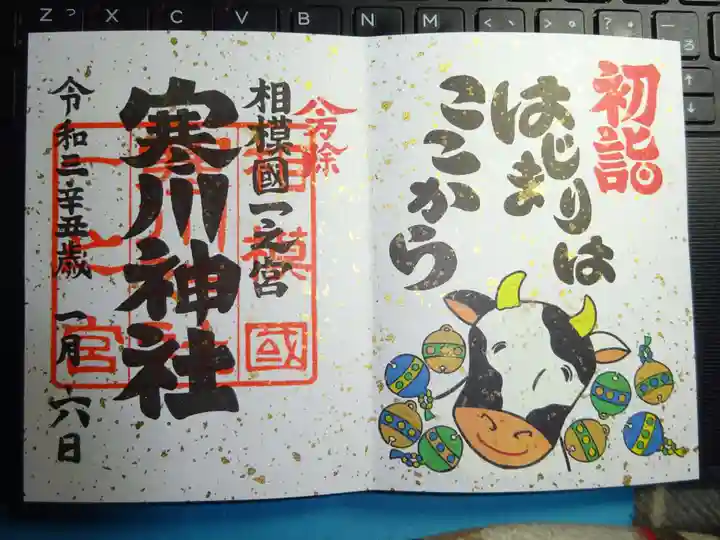 初詣
はじまりは
ここから
八方除
相模國一之宮
寒川神社
令和三辛丑歳 一月 六日
相模國
一之宮
Z っ
X
C
V
B
N
M